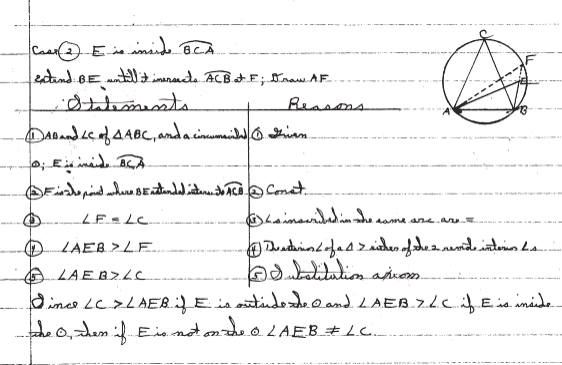 Case ② E is inside BCA
extend BE until it intersects ACB at F; Draw AF
C
F
E
A
B
Statements Reasons
① AB and ∠C of △ABC, and a circumscribed ① Given
O; E is inside BCA
② F is the point where BE extended intersects ACB ② Const.
③ ∠F = ∠C ③ ∠s inscribed in the same arc are =
④ ∠AEB > ∠F ④ The exterior ∠ of a △ > either of the 2 remote interior ∠s
⑤ ∠AEB > ∠C ⑤ Substitution axiom
Since ∠C > ∠AEB if E is outside the O and ∠AEB > ∠C if E is inside
the O, then if E is not on the O ∠AEB ≠ ∠C.